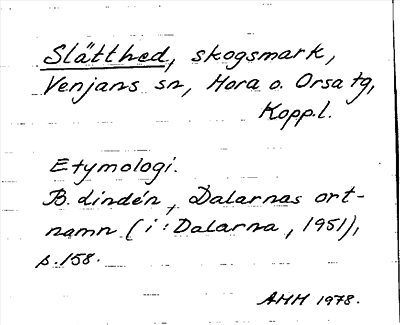 Slätthed, skogsmark,
Venjans sn, Mora o. Orsa tg,
Kopp.l.
Etymologi.
B. Lindén, Dalarnas ort-
namn (i: Dalarna, 1951),
s. 158.
AHH 1978.